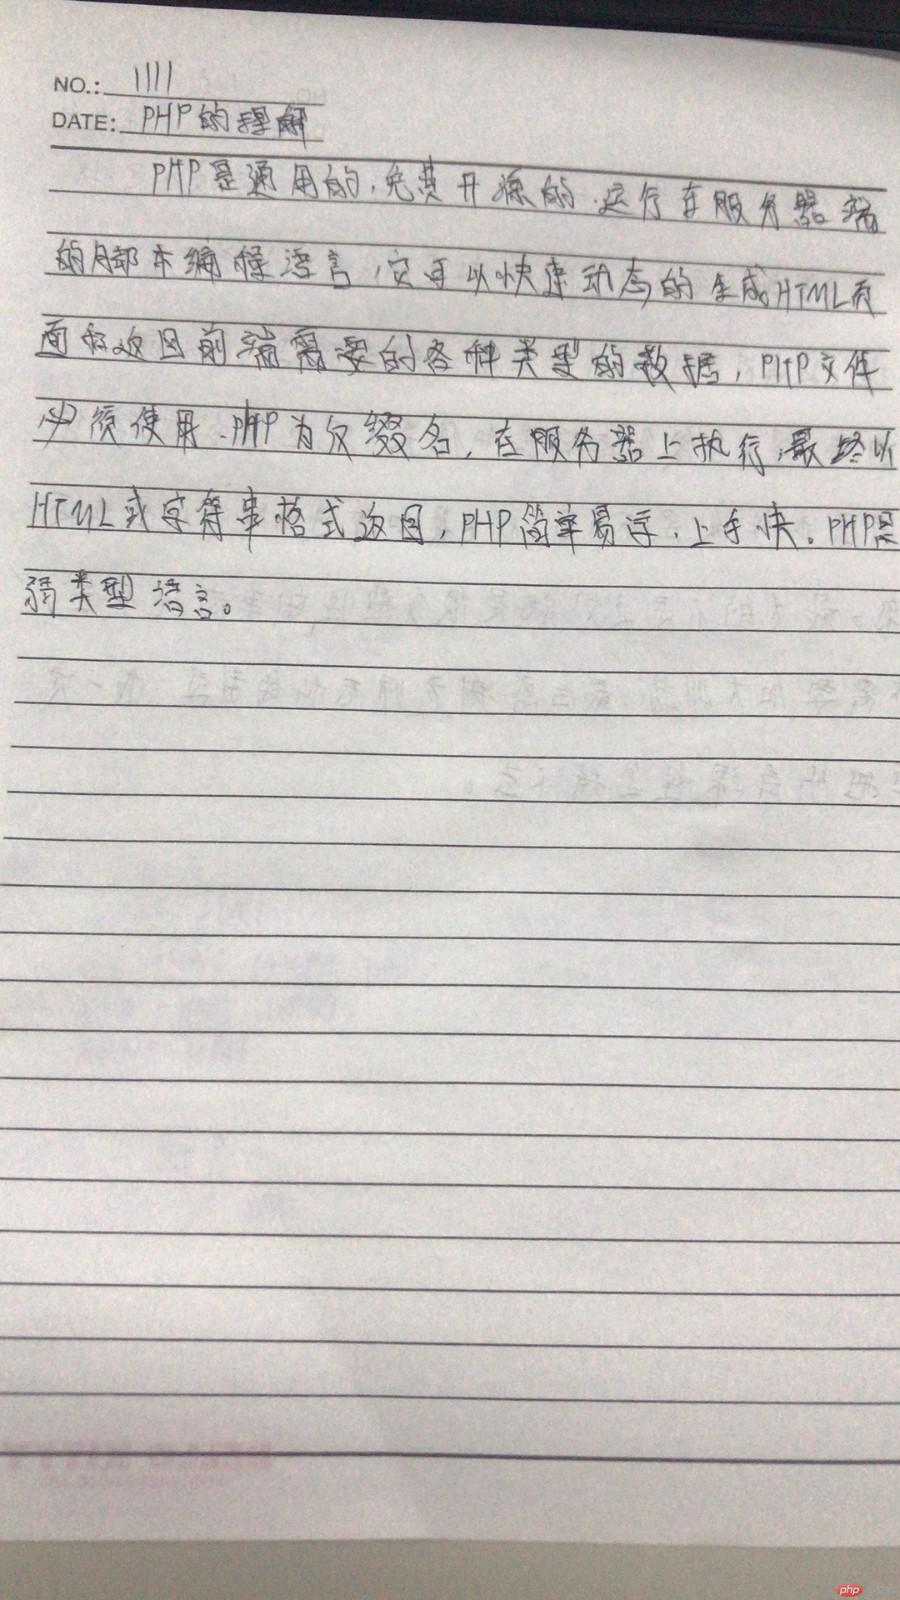 NO.: 1111
DATE: PHP的理解
PHP是通用的,免费开源的.运行在服务器端
的脚本编程语言,它可以快速动态的生成HTML页
面和返回前端需要的各种类型的数据,PHP文件
必须使用.PHP为后缀名,在服务器上执行,最终以
HTML或字符串格式返回,PHP简单易学,上手快。PHP是
弱类型语言。
php